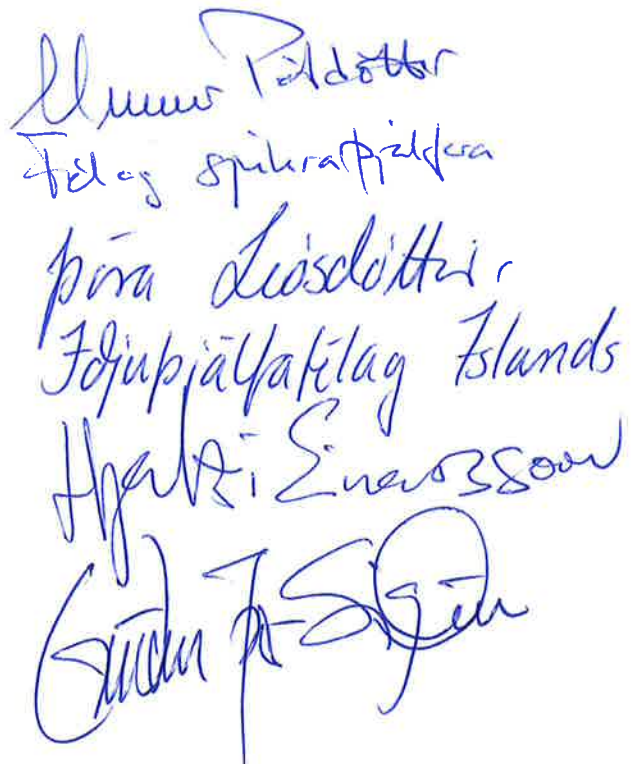 Unnur Pétdóttir
Félag sjúkraþjálfara
Þóra Leósdóttir
Iðjuþjálfafélag Íslands
Hjalti Einarsson